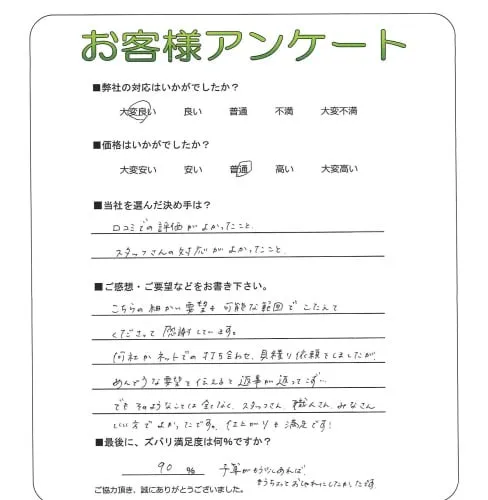 お客様アンケート
■弊社の対応はいかがでしたか？
大変良い 良い 普通 不満 大変不満
■価格はいかがでしたか？
大変安い 安い 普通 高い 大変高い
■当社を選んだ決め手は？
口コミでの評価がよかったこと、
スタッフさんの対応がよかったこと、
■ご感想・ご要望などをお書き下さい。
こちらの細かい要望も可能な範囲でこたえて
くださって感謝しています。
何社かネットでの打ち合わせ、見積り依頼をしましたが、
めんどうな要望を伝えると返事が返ってこず…
でもそのようなことは全くなく、スタッフさん、職人さん、みなさん
いい方でよかったです。仕上がりも満足です！
■最後に、ズバリ満足度は何％ですか？
90 ％ 予算がもう少しあれば、
もうちょっとおしゃれにしたかったです
ご協力頂き、誠にありがとうございました。